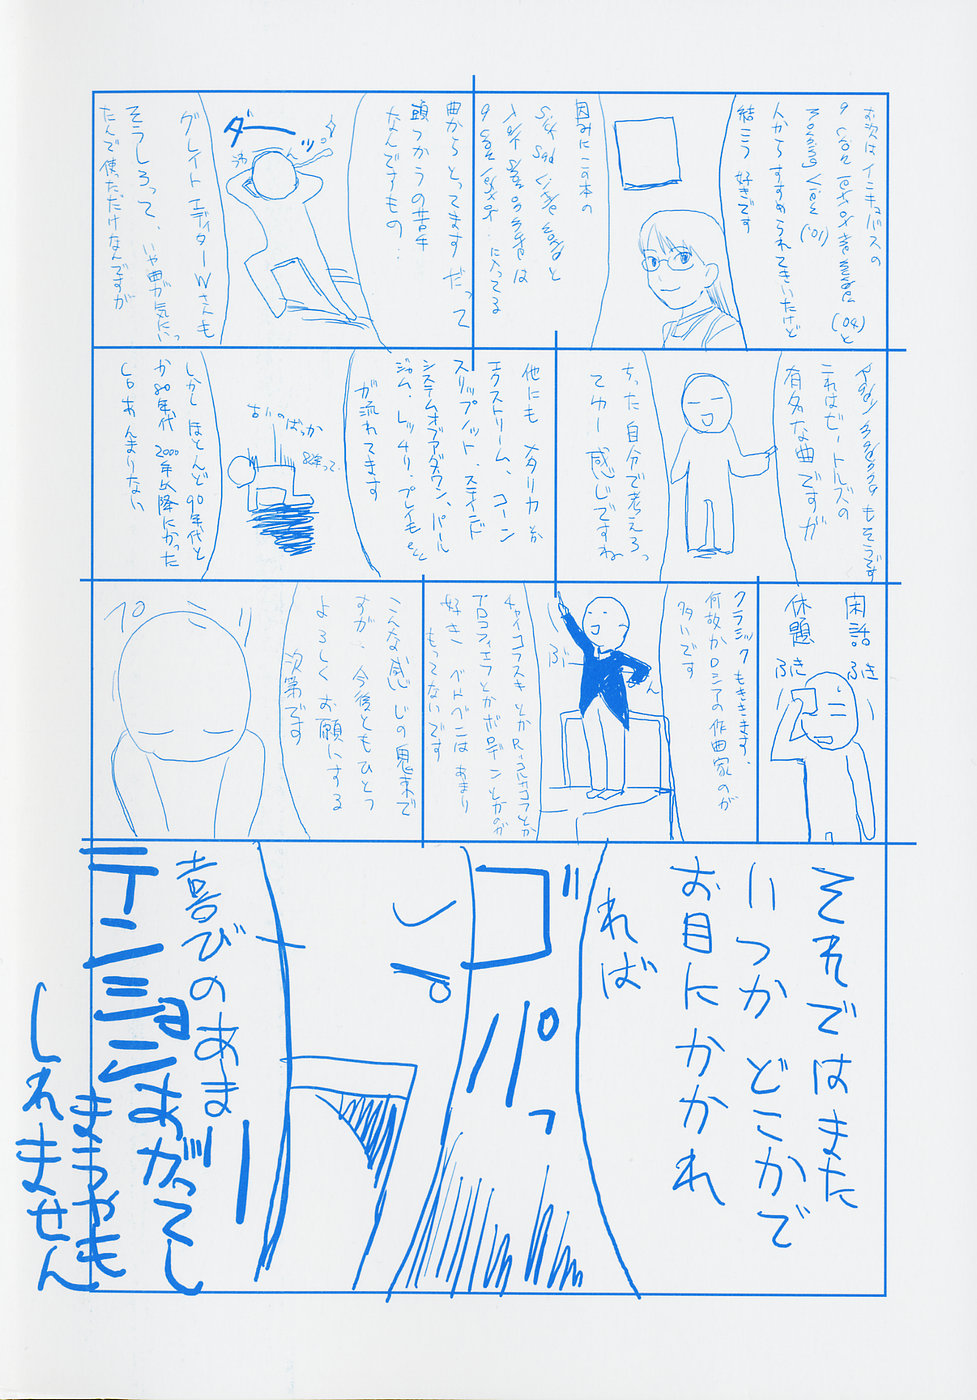 お次はインキュバスの
(04)と
('01)
人からすすめられてきいたけど
結こう好きです
因みにこの本の
と
は
に入ってる
曲からとってますだって
頭つかうの苦手
なんですもの…
ダーッ
グレイトエディターWさんも
そうしろって、いや曲が気にいっ
たんで使ただけなんですが
もそうです
これはビートルズの
有名な曲ですが
ちった自分で考えろっ
てゆー感じですね
他にもメタリカとか
エクストリーム、コーン
スリップノット、ステインド
システムオブアダウン、パール
ジャム、レッチリ、プレイもetc
が流れてます
あいのばっか
しかしほとんど90年代と
か80年代 2000年以降になった
らあんまりない
閑話
休題
ふき
ふき
クラシックもききます、
何故かロシアの作曲家のが
多いです
ぶーん
チャイコフスキとかR=コルサコフとか
プロコフィエフとかボロディンとかのが
好き ベトベンはあまり
もってないです
こんな感じの鬼束で
すが 今後ともひとつ
よろしくお願いする
次第です
ペコリ
それではまた
いつかどこかで
お目にかかれ
れば
ガバッ
喜びのあまり
テンションあがってし
まうやも
しれません